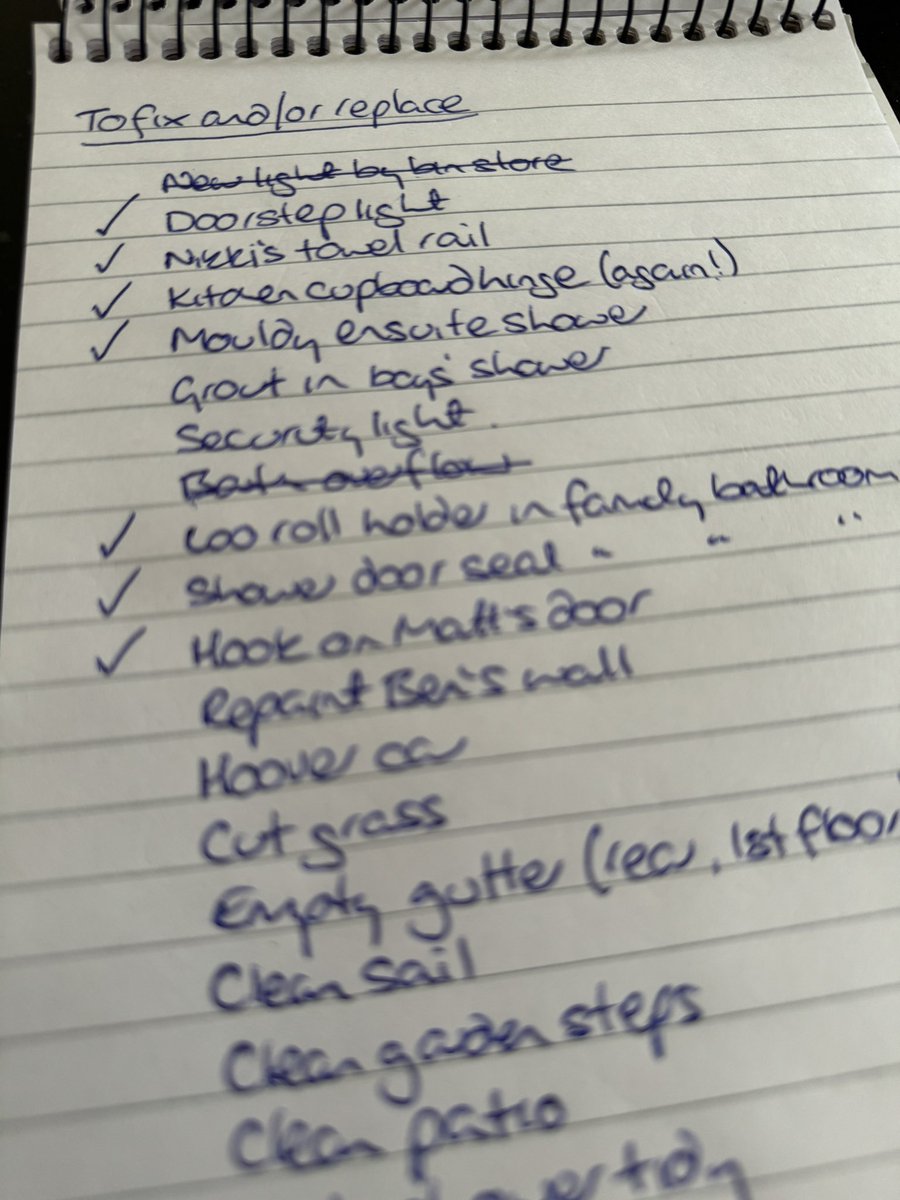 To fix and/or replace
New light by bin store
✓ Doorstep light
✓ Nikki's towel rail
✓ Kitchen cupboard hinge (again!)
✓ Mouldy ensuite shower
Grout in boys' shower
Security light.
Bath overflow
✓ Loo roll holder in family bathroom
✓ Shower door seal " " "
✓ Hook on Matt's door
Repaint Ben's wall
Hoover car
Cut grass
Empty gutter (rear, 1st floor
Clean sail
Clean garden steps
Clean patio